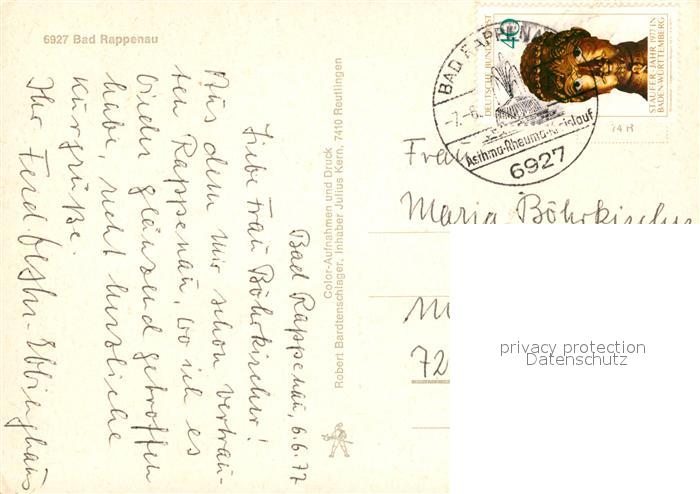 6927 Bad Rappenau
Bad Rappenau, 6.6.77
Liebe Frau Böhrkircher!
Aus dem mir schon vertrau-
ten Rappenau, wo ich es
wieder glänzend getroffen
habe, recht herzliche
Kurgrüße.
Ihr Ferd. 
Color-Aufnahmen und Druck
Robert Bardtenschlager, Inhaber Julius Kern, 7410 Reutlingen
BAD RAPPENAU
-7.-6.
Asthma-Rheuma-Kreislauf
6927
DEUTSCHE BUNDESPOST
40
STAUFER-JAHR 1977 IN
BADEN-WÜRTTEMBERG
Frau
Maria Böhrkircher
72
privacy protection
Datenschutz